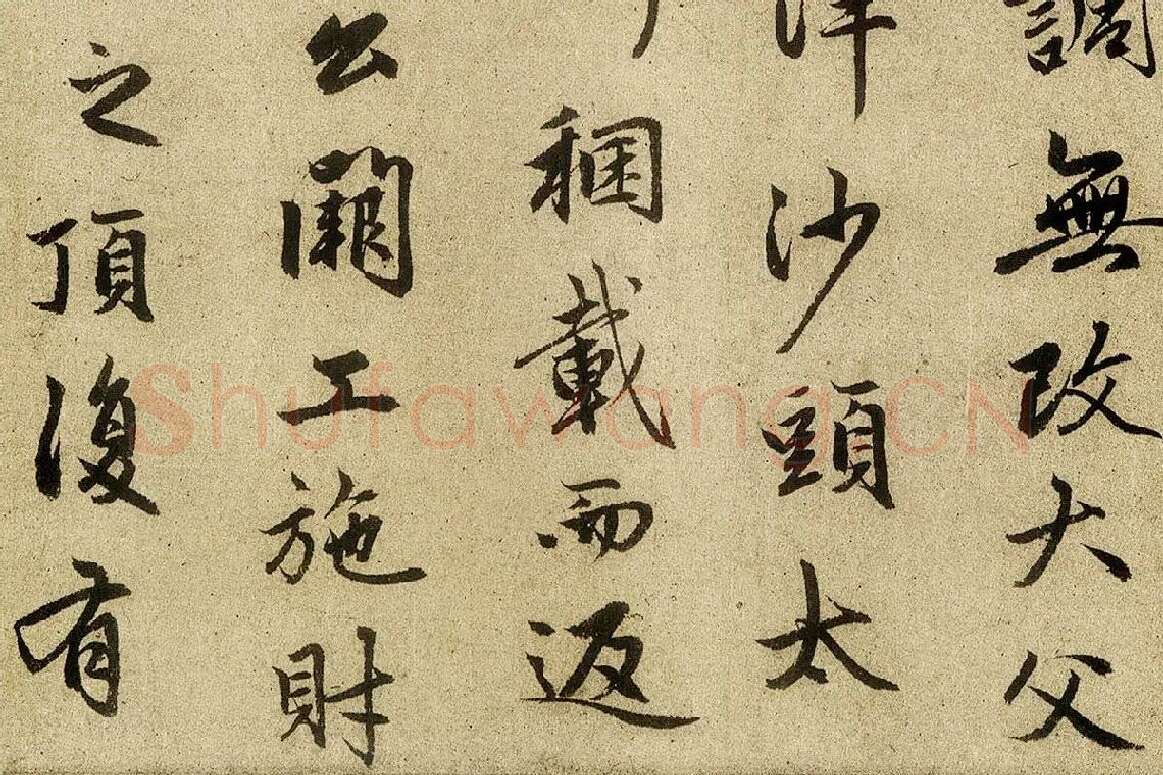 調無改大父
沙頭太
稇載而返
公工施財
之頂復有
Shufawang.CN